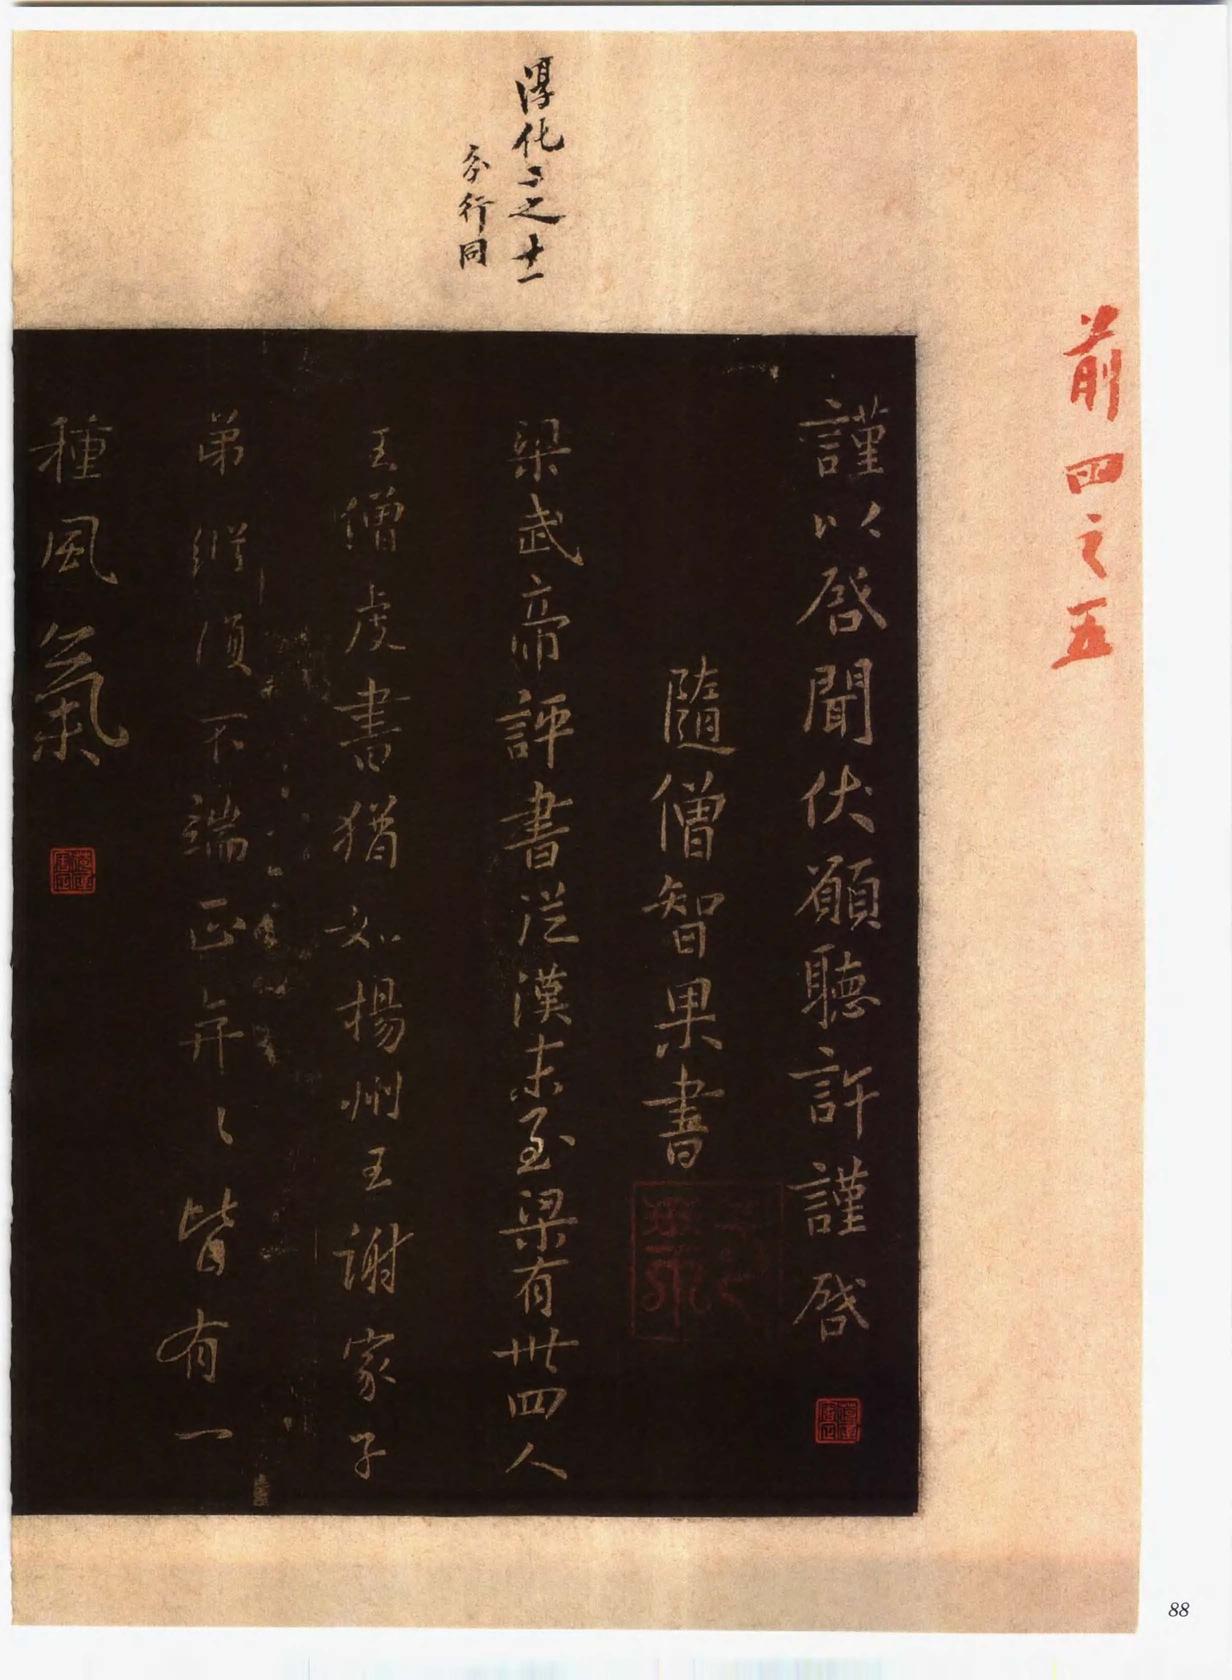 前四之五
淳化五之十一
分行同
謹以啓聞伏願聽許謹啓
隨僧智果書
梁武帝評書從漢末至梁有卅四人
王僧虔書猶如楊州王謝家子
弟縱須不端正奕〻皆有一
種風氣
88